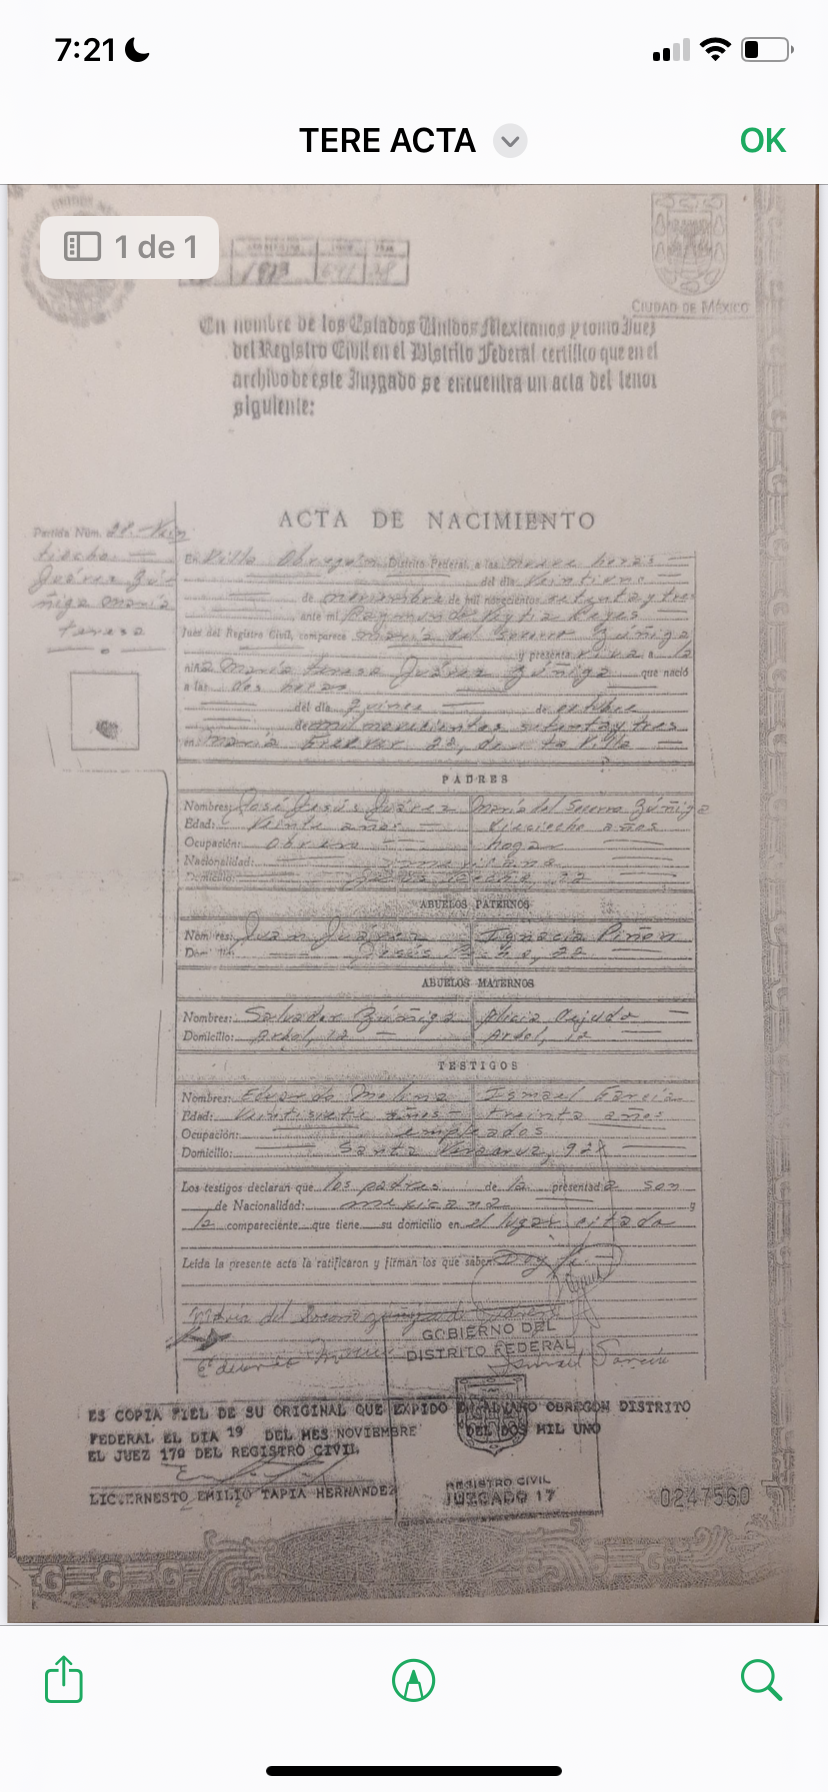 7:21
TERE ACTA
OK
1 de 1
1973
CIUDAD DE MÉXICO
En nombre de los Estados Unidos Mexicanos y como Juez
del Registro Civil en el Distrito Federal certifico que en el
archivo de este Juzgado se encuentra un acta del tenor
siguiente:
ACTA DE NACIMIENTO
Partida Núm. 28.-Vein
tiocho
Juárez Zúñ-
ñiga María
teresa
En Villa Obregón, Distrito Federal, a las nueve horas
del día Veintiuno
de noviembre de mil novecientos setenta y tres
ante mí Reyes
Juez del Registro Civil, comparece María del Socorro Zúñiga
y presenta viva a la
niña María teresa Juárez Zúñiga que nació
a las dos horas
del día quince de octubre
de mil novecientos setenta y tres
en María 22, de esta Villa
PADRES
Nombres: José Jesús Juárez María del Socorro Zúñiga
Edad: Veinte años dieciocho años
Ocupación: Obrero hogar
Nacionalidad: mexicana
Domicilio: 22
ABUELOS PATERNOS
Nombres: Juan Juárez Ignacia Piñón
Domicilio: 22
ABUELOS MATERNOS
Nombres: Salvador Zúñiga Alicia
Domicilio: Arbol, 12 Arbol, 12
TESTIGOS
Nombres: Eduardo Molina Ismael García
Edad: Veintisiete años treinta años
Ocupación: empleados
Domicilio: Santa Veracruz, 92
Los testigos declaran que los padres de la presentada son
de Nacionalidad: mexicana y
la compareciente que tiene su domicilio en el lugar citado
Leída la presente acta la ratificaron y firman los que saben Doy fe.
María del Socorro Zúñiga de Juárez
Ismael García
GOBIERNO DEL
DISTRITO FEDERAL
ES COPIA FIEL DE SU ORIGINAL QUE EXPIDO EN ALVARO OBREGON DISTRITO
FEDERAL EL DIA 19 DEL MES NOVIEMBRE DEL DOS MIL UNO
EL JUEZ 17º DEL REGISTRO CIVIL
LIC. ERNESTO EMILIO TAPIA HERNANDEZ
REGISTRO CIVIL
JUZGADO 17
0247560